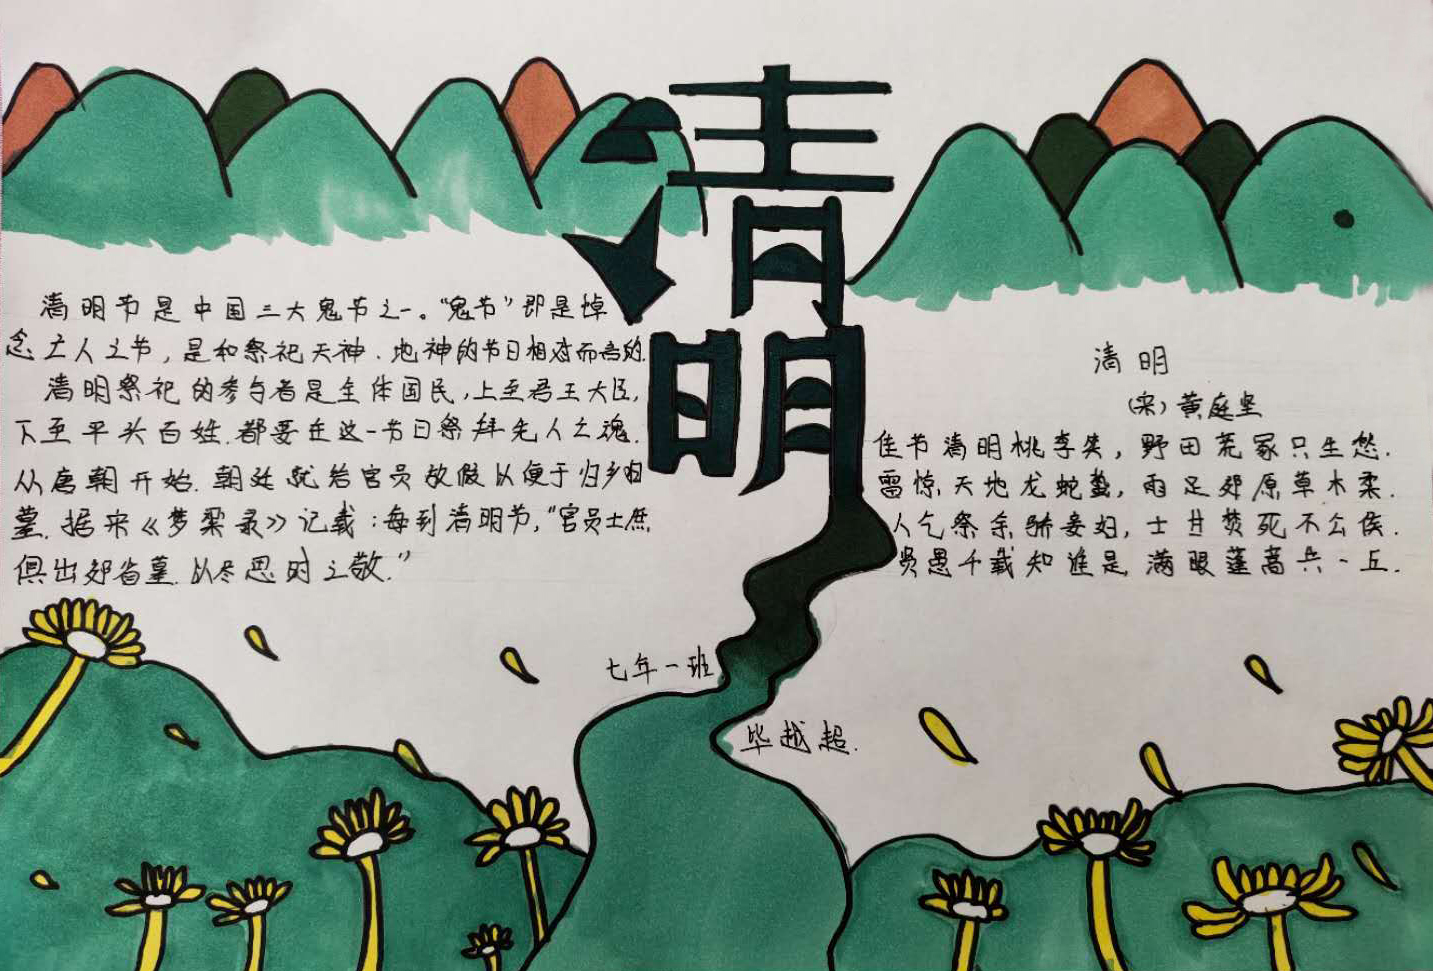 清明
清明节是中国三大鬼节之一。“鬼节”即是悼
念亡人之节，是和祭祀天神、地神的节日相对而言的.
清明祭祀的参与者是全体国民，上至君王大臣，
下至平头百姓.都要在这一节日祭拜先人亡魂.
从唐朝开始.朝廷就给官员放假以便于归乡扫
墓.据宋《梦梁录》记载：每到清明节，“官员士庶
俱出郊省墓.以尽思时之敬.”
清明
（宋）黄庭坚
佳节清明桃李笑，野田荒冢只生愁.
雷惊天地龙蛇蛰，雨足郊原草木柔.
人乞祭余骄妾妇，士甘焚死不公侯.
贤愚千载知谁是，满眼蓬蒿共一丘.
七年一班
毕越超.